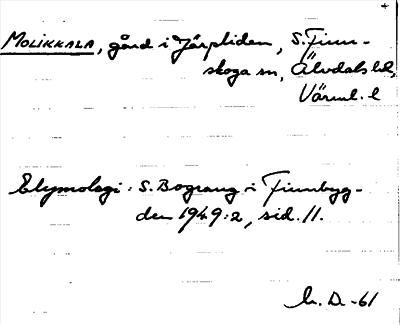 MOLIKKALA, gård i Järpliden, S. Finn-
skoga sn, Älvdals hd,
Värml. l
Etymologi: S. Bograng i Finnbyg-
den 1949:2, sid. 11.
D. -61